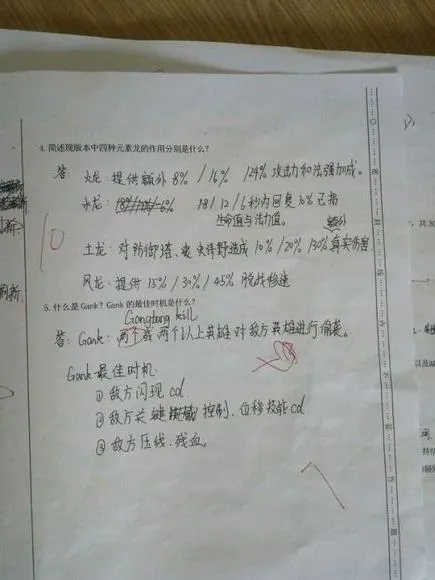 4. 简述现版本中四种元素龙的作用分别是什么?
答: 火龙: 提供额外 8% / 16% / 24% 攻击力和法强加成。
水龙: 18 / 12 / 6秒内回复10%已损
生命值与法力值。
额外
10
土龙: 对防御塔、史诗野造成 10% / 20% / 30% 真实伤害
风龙: 提供 15% / 30% / 45% 脱战移速
5. 什么是 Gank? Gank 的最佳时机是什么?
Gangbang kill
答: Gank: 两个或两个以上英雄对敌方英雄进行偷袭。
Gank最佳时机
①敌方闪现 cd
②敌方关键控制、位移技能cd
③敌方压线、残血。
7
刷新